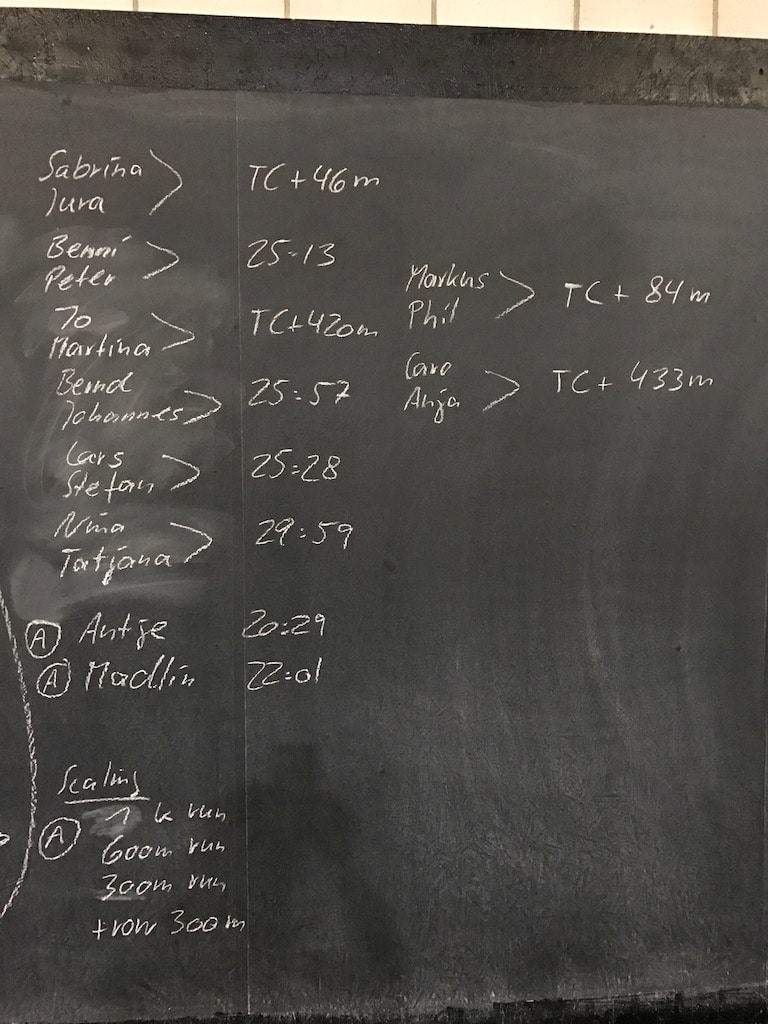 Sabrina
Jura > TC + 46m
Benni
Peter > 25:13
Jo
Martina > TC + 420m
Bernd
Johannes > 25:57
Lars
Stefan > 25:28
Nina
Tatjana > 29:59
Ⓐ Antje 20:29
Ⓐ Madlin 22:01
Markus
Phil > TC + 84m
Caro
Anja > TC + 433m
Scaling
Ⓐ 1 k run
600m run
300m run
+ row 300m